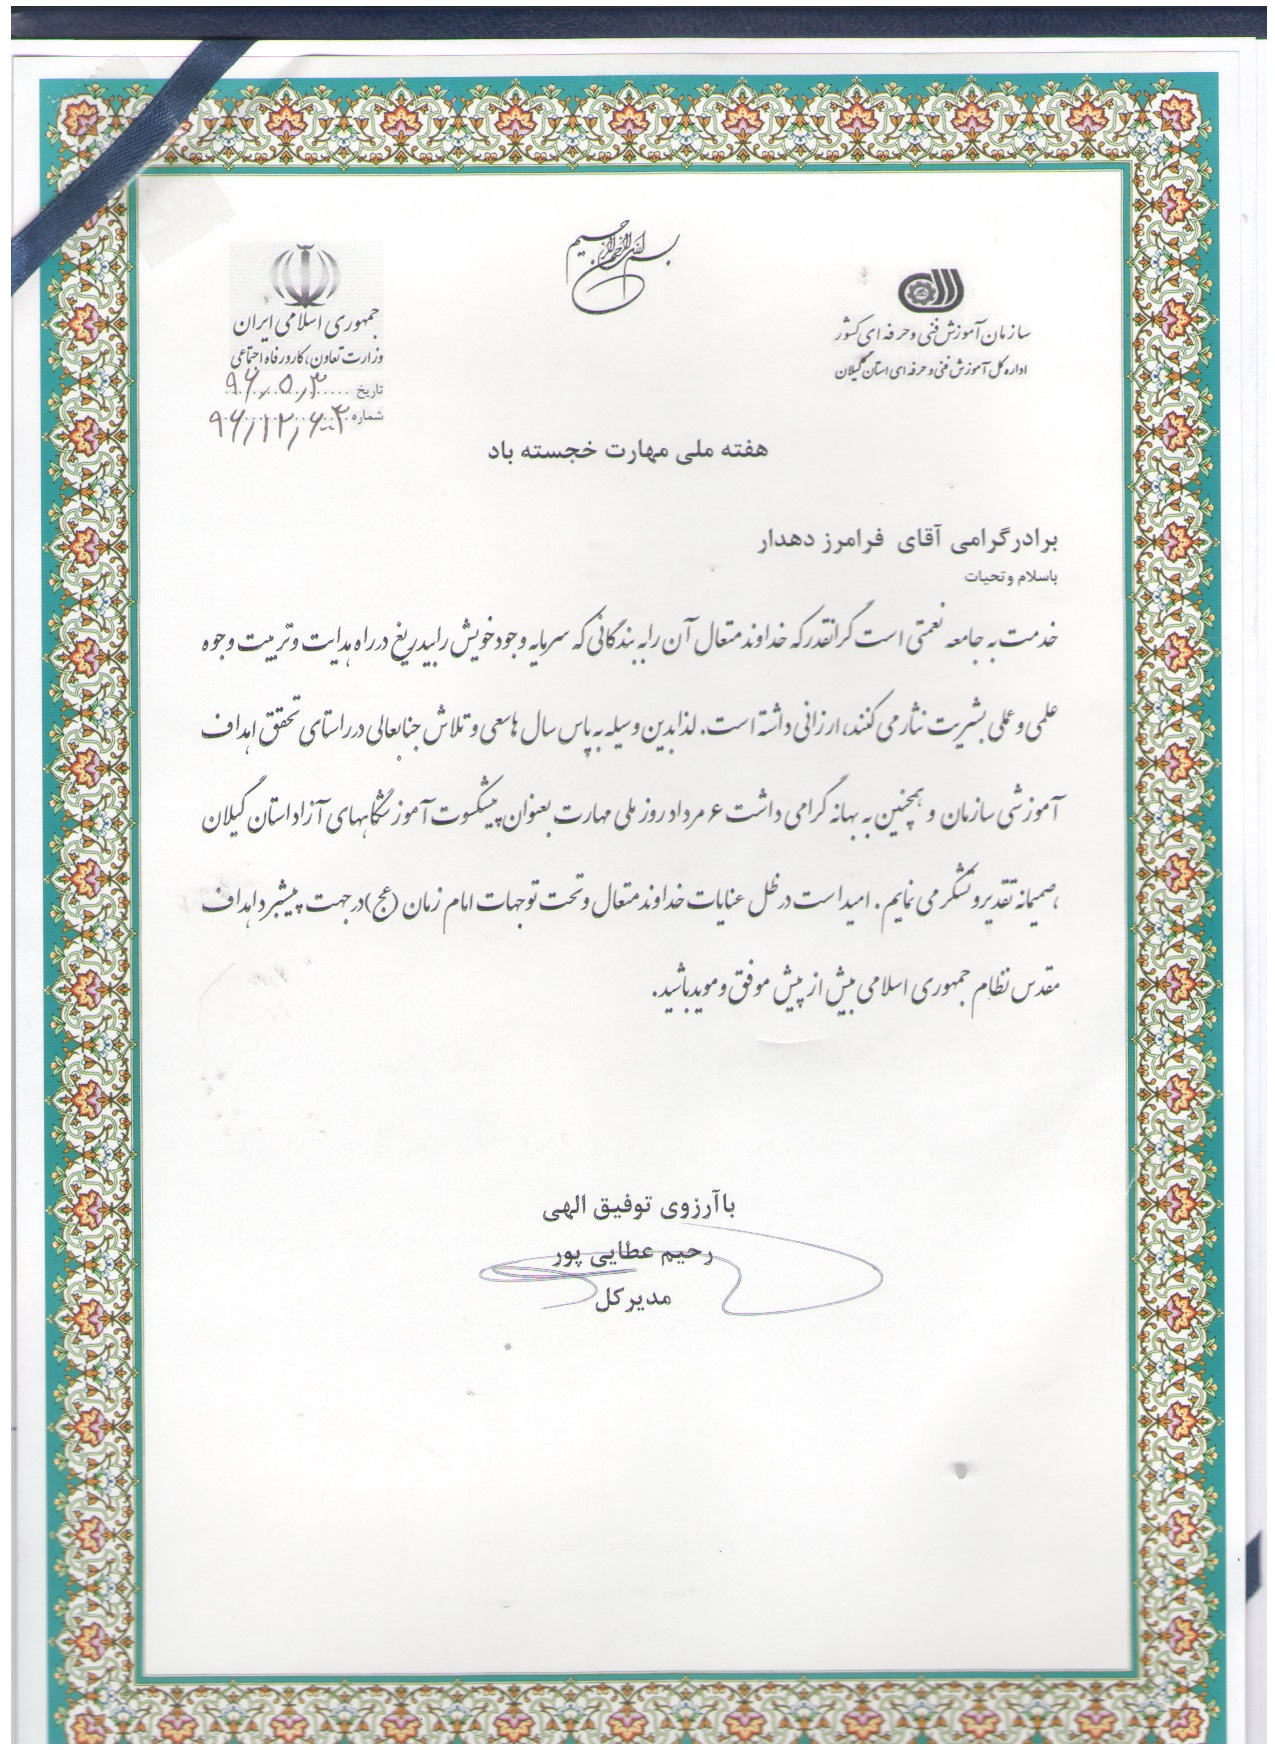 بسم الله الرحمن الرحیم
سازمان آموزش فنی و حرفه ای کشور
اداره کل آموزش فنی و حرفه ای استان گیلان
جمهوری اسلامی ایران
وزارت تعاون، کار و رفاه اجتماعی
تاریخ ۹۶,۵,۳
شماره ۹۶/۱۲/۶۰۴
هفته ملی مهارت خجسته باد
برادرگرامی آقای فرامرز دهدار
باسلام و تحیات
خدمت به جامعه نعمتی است گرانقدر که خداوند متعال آن را به بندگانی که سرمایه وجود خویش را بیدریغ در راه هدایت و تربیت وجوه
علمی و عملی بشریت نثار می کنند، ارزانی داشته است. لذا بدین وسیله به پاس سال ها سعی و تلاش جنابعالی در راستای تحقق اهداف
آموزشی سازمان و همچنین به بهانه گرامی داشت ۶ مرداد روز ملی مهارت بعنوان پیشکسوت آموزشگاههای آزاد استان گیلان
، صمیمانه تقدیر و تشکر می نمایم . امید است در ظل عنایات خداوند متعال و تحت توجهات امام زمان (عج) در جهت پیشبرد اهداف
مقدس نظام جمهوری اسلامی بیش از پیش موفق و موید باشید.
باآرزوی توفیق الهی
رحیم عطایی پور
مدیرکل